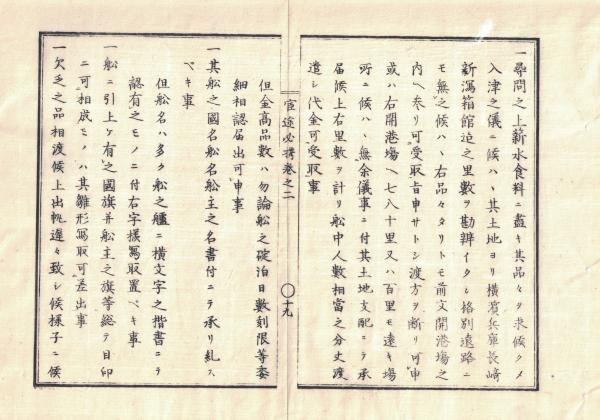 一尋問之上薪水食料ニ盡キ其品々ヲ求候タメ
入津之儀ニ候ハヽ其土地ヨリ横濱兵庫長崎
新瀉箱館迠之里數ヲ勘辨イタシ格別遠路ニ
モ無之候ハヽ右品々タリトモ前文開港塲之
内ヘ参リ可受取旨申サトシ渡方ヲ断リ可申
或ハ右開港塲ヘ七八十里又ハ百里モ遠キ塲
所ニ候ハヽ無余儀事ニ付其土地支配ニテ承
届候上右里數ヲ計リ舩中人數相當之分丈渡
遣シ代金可受取事
宦途必携巻之二 〇十九
但金高品數ハ勿論舩之碇泊日數刻限等委
細相認届出可申事
一其舩之國名舩名舩主之名書付ニテ承リ糺ス
ベキ事
但舩名ハ多ク舩之艫ニ横文字之楷書ニテ
認有之モノニ付右字樣寫取置ベキ事
一舩ニ引上ケ有之國旗并舩主之旗等総テ目印
ニ可相成モノハ其雛形寫取可差出事
一欠乏之品相渡候上出帆遅々致シ候様子ニ候